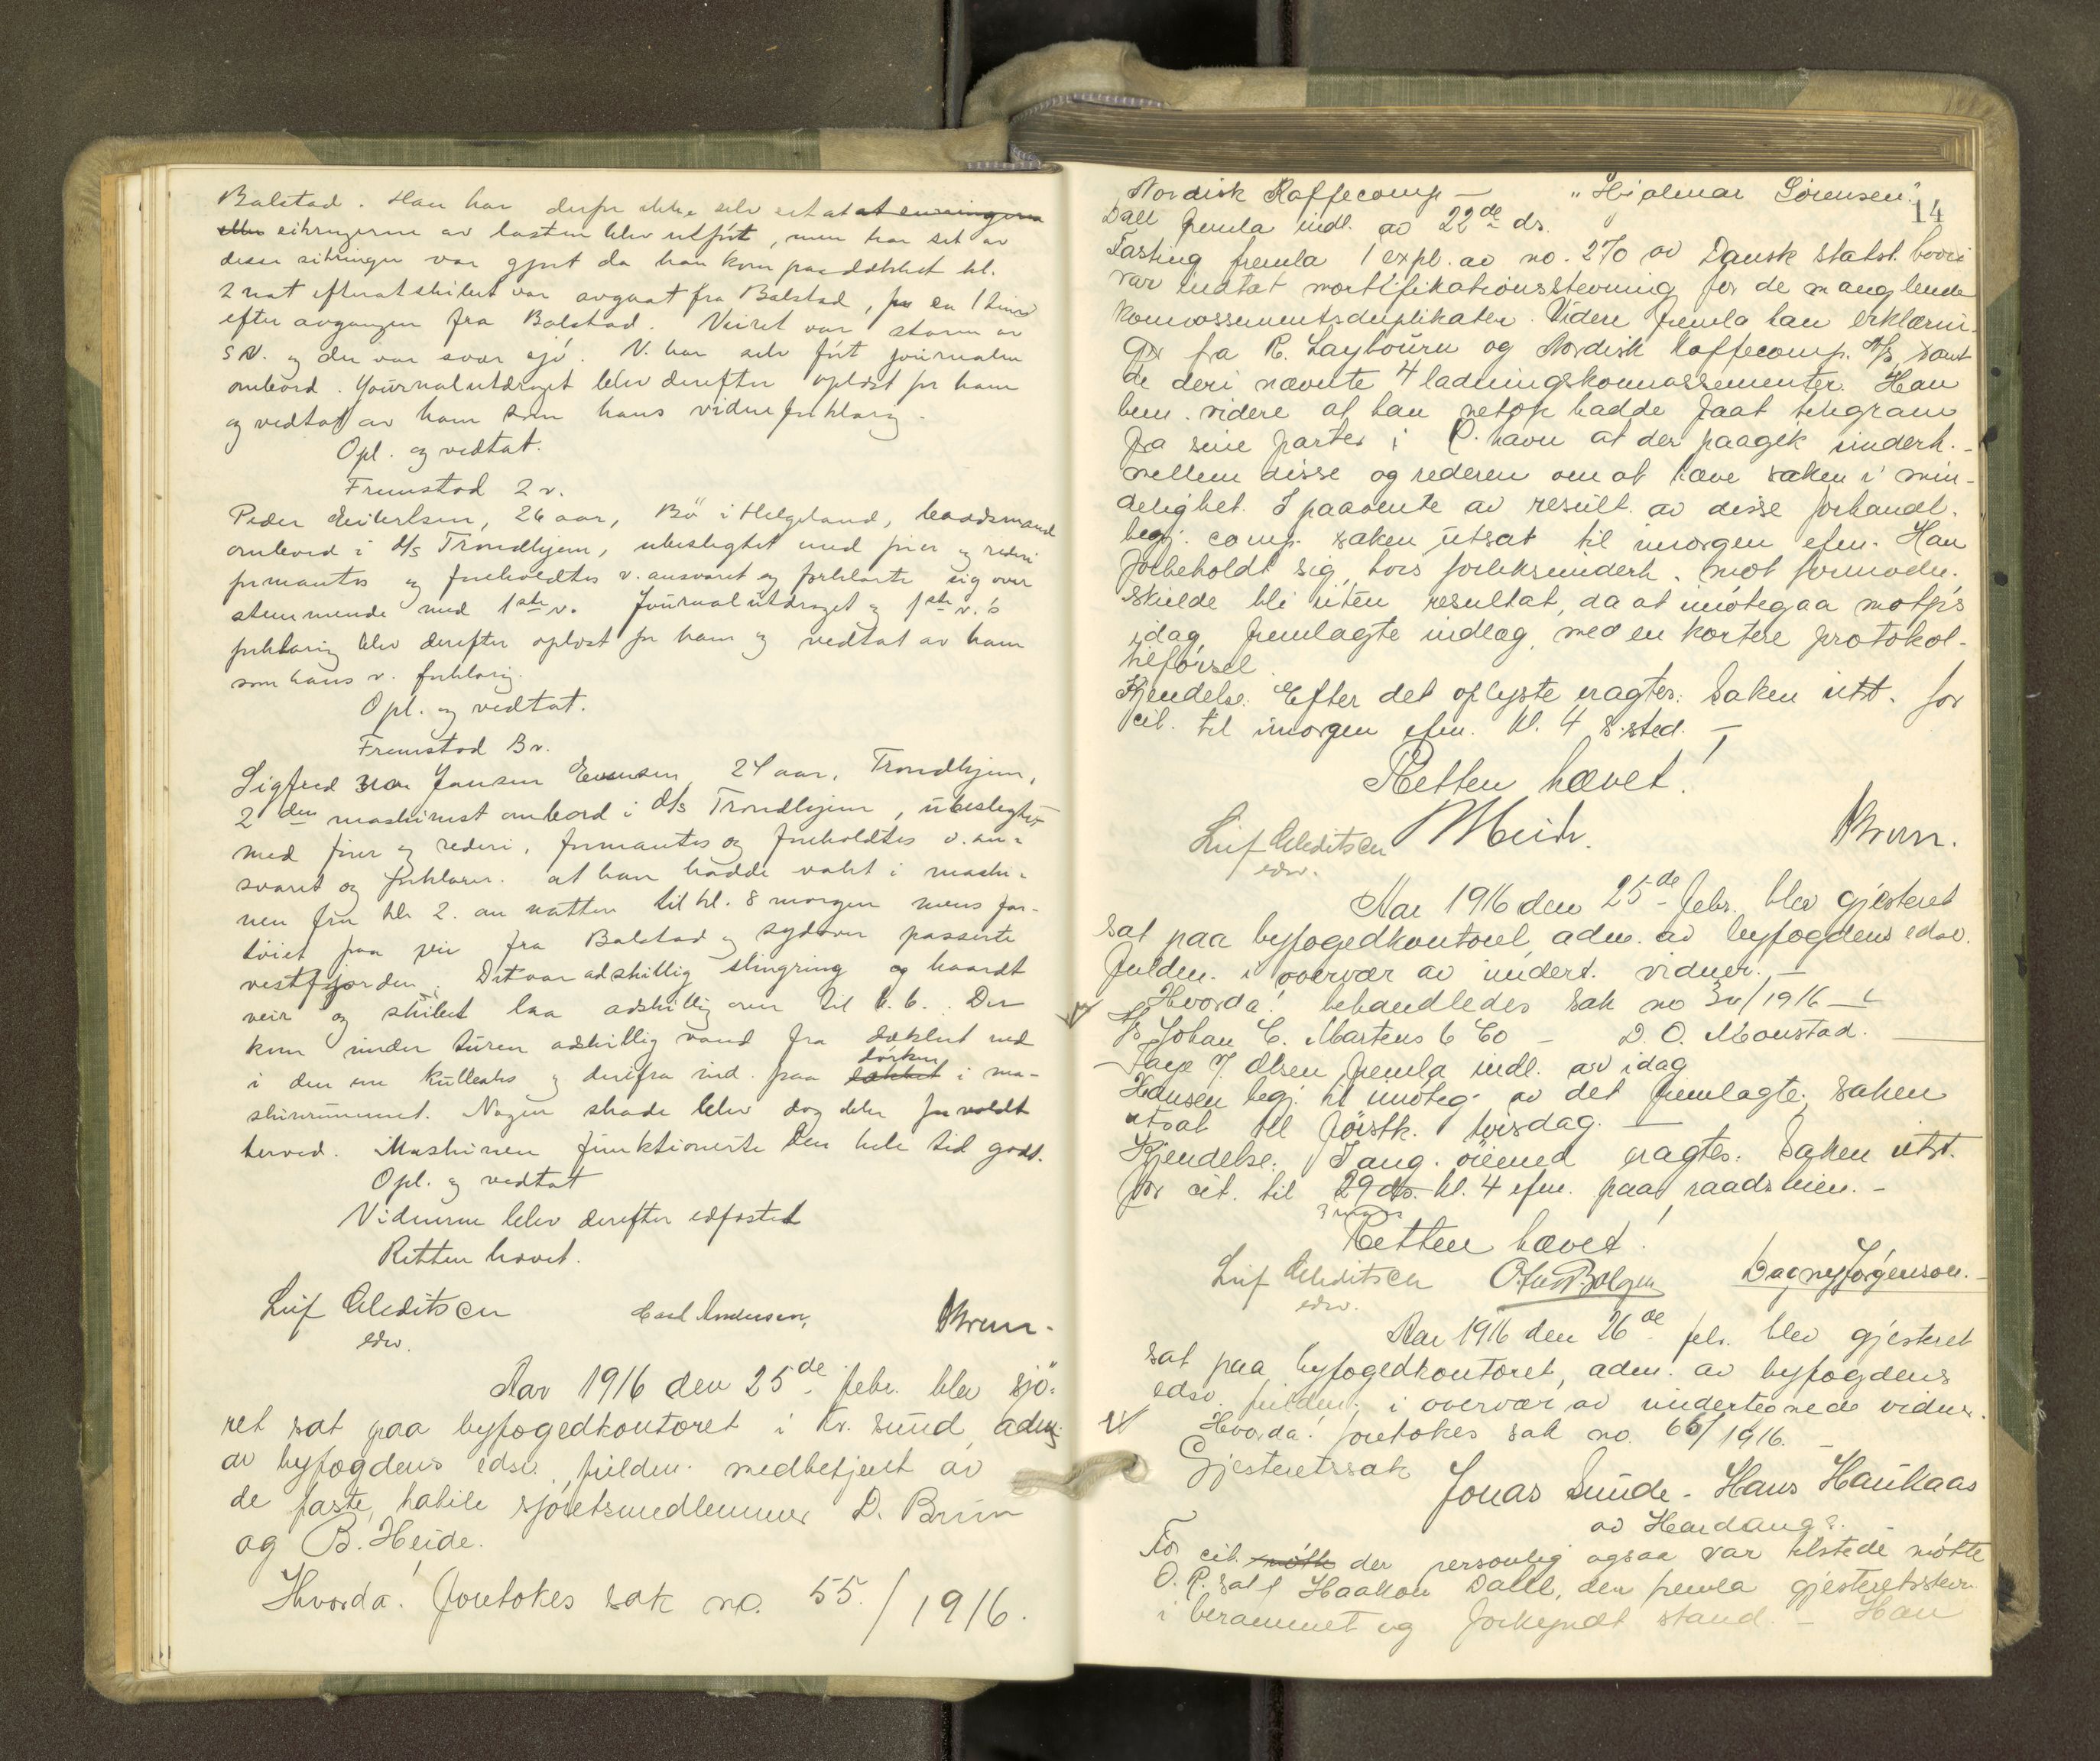 Balstad. Han har derfor ikke selv set at at surringerne
eller sikringerne av lasten blev utført, men har set av
disse sikringer var gjort da han kom paa dækket kl.
2 nat efterat skibet var avgaat fra Balstad, for ca 1 time
efter avgangen fra Balstad. Veiret var storm av
S.V. og der var svær sjö. V. har selv ført journalen
ombord. Journalutdraget blev derefter oplæst for ham
og vedtat av ham som hans vidneforklaring.
Opl. og vedtat.
Fremstod 2 v.
Peder Eilertsen, 26 aar, Bö i Helgeland, baadsmand
ombord i d/s Trondhjem, ubeslegtet med fører og rederi
formantes og foreholdtes v. ansvaret og forklarte sig over
stemmende med 1ste v. Journalutdraget og 1ste v.'s
forklaring blev derefter oplæst for ham og vedtat av ham
som hans v. forklaring.
Opl. og vedtat.
Fremstod 3 v.
Sigfred Jansen Evensen, 24 aar, Trondhjem,
2den maskinist ombord i d/s Trondhjem, ubeslegtet
med fører og rederi, formantes og foreholdtes v. an-
svaret og forklarer at han hadde vakt i maski-
nen fra kl. 2 om natten til kl. 8 morgen mens far-
töiet paa vei fra Balstad og sydover passerte
vestfjorden. Det var adskillig slingring og haardt
veir og skibet laa adskillig over til b.b. Der
kom under turen adskillig vand fra dækket ned
i den ene kulboks og derifra ind paa dørken
dækket i ma-
skinrummet. Nogen skade blev dog ikke forvoldt
herved. Maskinen funktionerte den hele tid godt.
Opl. og vedtat
Vidnerne blev derefter edfæstet
Retten hævet.
Leif Aleditscen Carl Andersen, Brun.
edsv.
Aar 1916 den 25de febr. blev sjö-
ret sat paa byfogedkontoret i Kr. sund, adm.
av byfogdens edsv. fuldm. medbetjent av
de faste, habile sjöretsmedlemmer D. Brun
og B. Heide.
Hvorda! foretokes sak no. 55./1916.
14
Nordisk Kaffecomp — "Hjalmar Sörensen".
Dall fremla indl. av 22de ds.
Tasting fremla 1 expl. av no. 270 av Dansk statst. hvori
var indtat mortifikationsstevning for de manglende
konnossementsduplikater. Videre fremla han erklærin-
ger fra R. Laybourn og Nordisk Kaffecomp. A/S samt
de deri nævnte 4 ladningskonnossementer. Han
bem. videre at han netop hadde faat telegram
fra sine parter i K.havn at der paagik underh.-
mellem disse og rederen om at hæve saken i min-
delighet. I paavente av result. av disse forhandl.
begj. comp. saken utsat til imorgen efm. Han
forbeholdt sig, hvis forliksunderh. mot formodn.
skulde bli uten resultat, da at imøtegaa motp's
idag fremlagte indlæg, med en kortere protokol-
tilførsel.
Kjendelse. Efter det oplyste eragtes: Saken utst. for
cit. til imorgen efm. kl. 4 s. sted. —
Retten hævet!
Leif Aleditscen Brun.
edsv.
Aar 1916 den 25de febr. blev gjesteret
sat paa byfogedkontoret, adm. av byfogdens edsv.
fuldm. i overvær av undert. vidner. —
Hvorda! behandledes sak no 30/1916 —
A/S Johan C. Martens & Co — D. O. Monstad.
Aage J. Olsen fremla indl. av idag
Hansen begj. til imøteg. av det fremlagte, saken
utsat til førstk. tirsdag. —
Kjendelse. I ang. öiemed eragtes: Saken utst.
for cit. til 29 ds. kl. 4 efm. paa raadstuen. —
Retten hævet!
Leif Aleditscen Dagny Jörgenson.
edsv.
Aar 1916 den 26de febr. blev gjesteret
sat paa byfogedkontoret, adm. av byfogdens
edsv. fuldm. i overvær av undertegnede vidner.
Hvorda! foretokes sak no. 66/1916. —
Gjesteretssak
Jonas Sunde - Hans Haukaas
av Hardanger.
For cit. møtte der personlig ogsaa var tilstede møtte
O. R. sakf. Haakon Dall, der fremla gjesteretsstevn.
i berammet og forkyndt stand. — Han